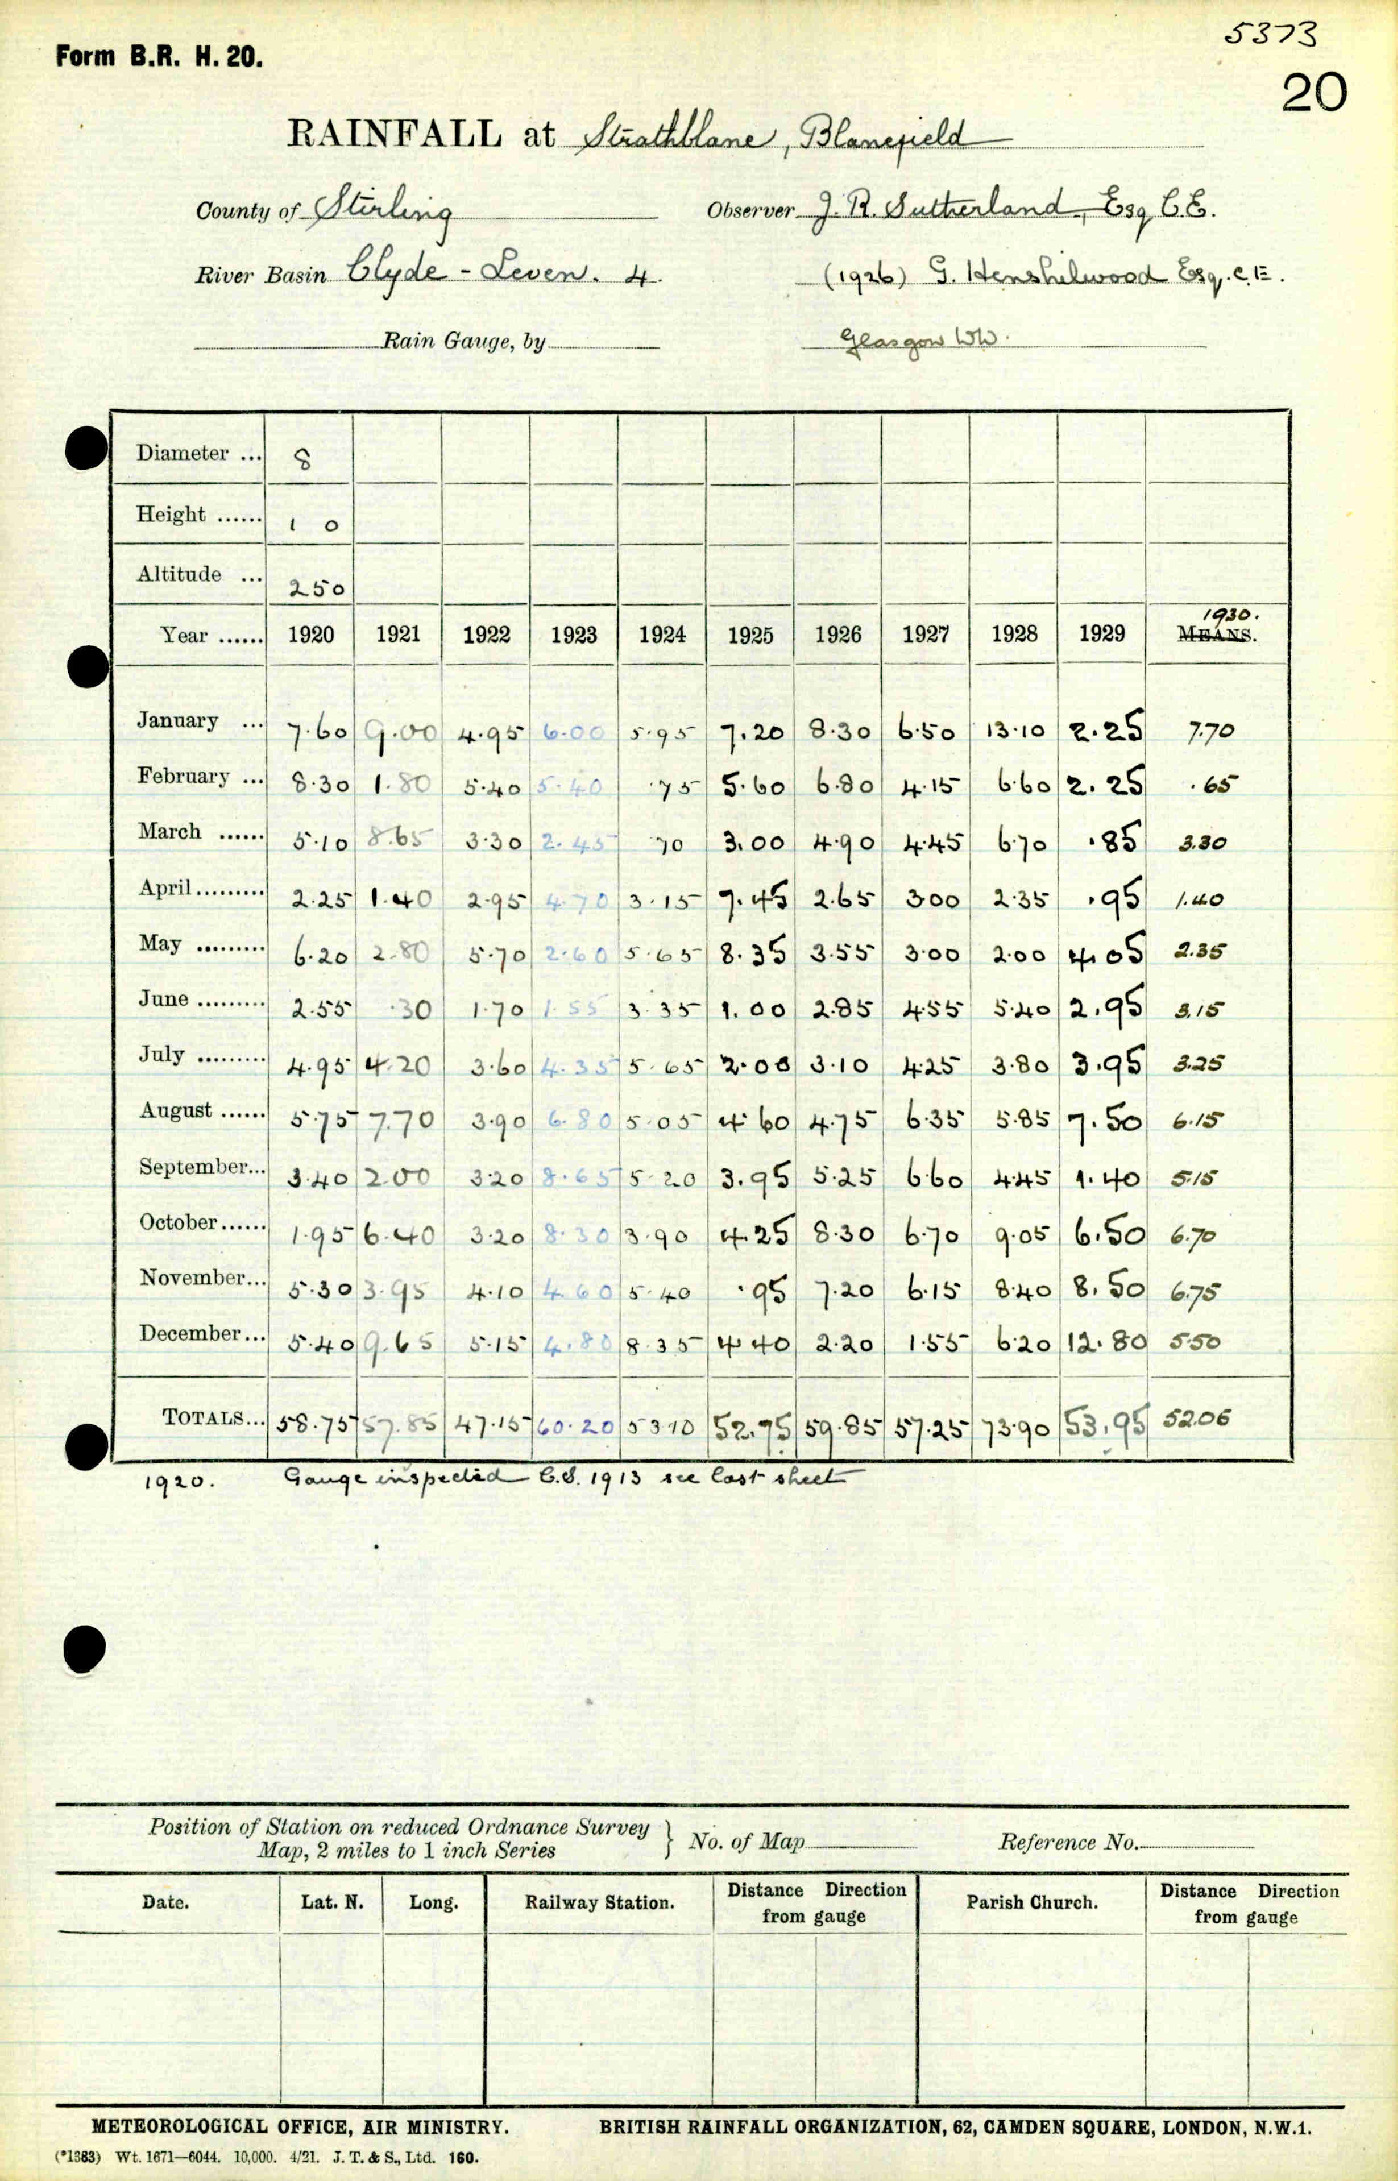 5373
Form B.R. H. 20.
20
RAINFALL at Strathblane, Blanefield
County of Stirling Observer J. R. Sutherland, Esq C.E.
River Basin Clyde - Leven. 4 (1926) G. Henshilwood Esq. C.E.
Rain Gauge, by Glasgow WW.
Diameter ... 8
Height ...... 1 0
Altitude ... 250
1930.
Year ...... 1920 1921 1922 1923 1924 1925 1926 1927 1928 1929 MEANS.
January ... 7.60 9.00 4.95 6.00 5.95 7.20 8.30 6.50 13.10 2.25 7.70
February ... 8.30 1.80 5.40 5.40 .75 5.60 6.80 4.15 6.60 2.25 .65
March ...... 5.10 8.65 3.30 2.45 70 3.00 4.90 4.45 6.70 .85 3.30
April......... 2.25 1.40 2.95 4.70 3.15 7.45 2.65 3.00 2.35 .95 1.40
May ......... 6.20 2.80 5.70 2.60 5.65 8.35 3.55 3.00 2.00 4.05 2.35
June ......... 2.55 .30 1.70 1.55 3.35 1.00 2.85 4.55 5.40 2.95 3.15
July ......... 4.95 4.20 3.60 4.35 5.65 2.00 3.10 4.25 3.80 3.95 3.25
August ...... 5.75 7.70 3.90 6.80 5.05 4.60 4.75 6.35 5.85 7.50 6.15
September... 3.40 2.00 3.20 8.65 5.20 3.95 5.25 6.60 4.45 1.40 5.15
October...... 1.95 6.40 3.20 8.30 3.90 4.25 8.30 6.70 9.05 6.50 6.70
November... 5.30 3.95 4.10 4.60 5.40 .95 7.20 6.15 8.40 8.50 6.75
December... 5.40 9.65 5.15 4.80 8.35 4.40 2.20 1.55 6.20 12.80 5.50
TOTALS... 58.75 57.85 47.15 60.20 53.10 52.75 59.85 57.25 73.90 53.95 52.06
1920. Gauge inspected C.S. 1913 see last sheet
Position of Station on reduced Ordnance Survey
Map, 2 miles to 1 inch Series } No. of Map Reference No.
Date. Lat. N. Long. Railway Station. Distance Direction from gauge Parish Church. Distance Direction from gauge
METEOROLOGICAL OFFICE, AIR MINISTRY. BRITISH RAINFALL ORGANIZATION, 62, CAMDEN SQUARE, LONDON, N.W.1.
(*1383) Wt. 1671—6044. 10,000. 4/21. J. T. & S., Ltd. 160.